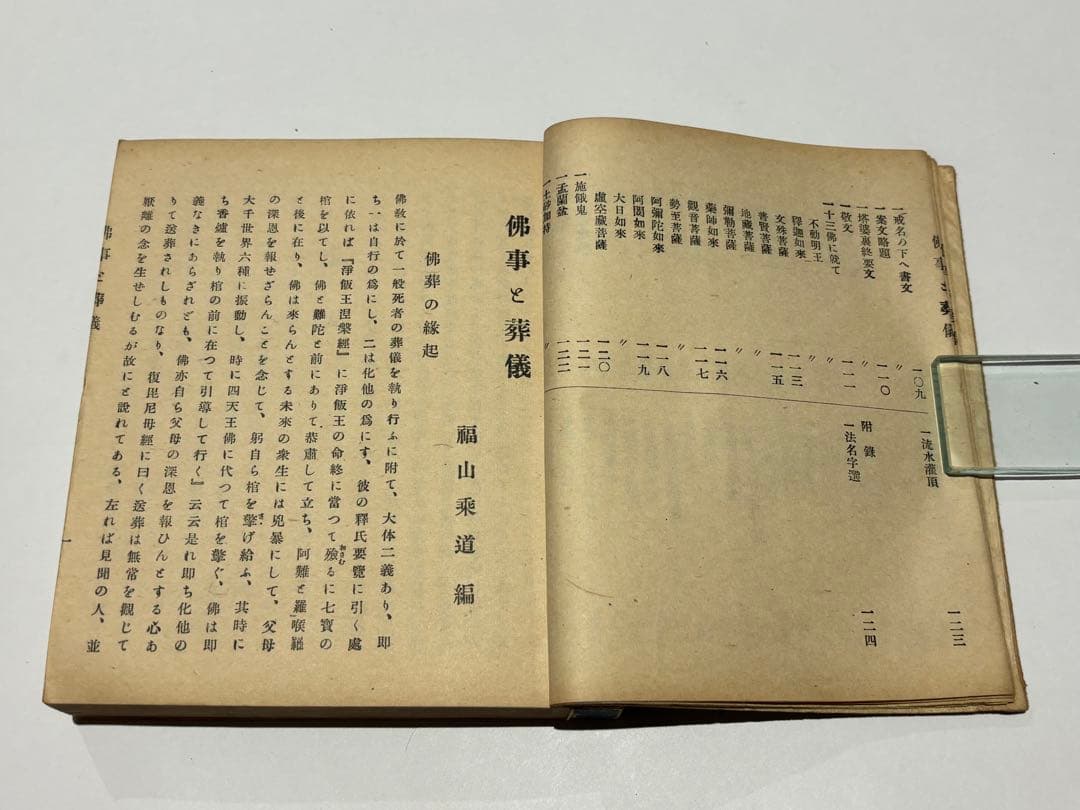 佛事と葬儀
一戒名の下へ書文 一〇九
一案文略題 〃
一塔婆裏終要文 一一〇
一敬文 〃
一十三佛に就て 一一一
不動明王 〃
釋迦如來 〃
文殊菩薩 一一三
普賢菩薩 一一五
地藏菩薩 〃
彌勒菩薩 〃
藥師如來 一一六
觀音菩薩 一一七
勢至菩薩 〃
阿彌陀如來 一一八
阿閦如來 一一九
大日如來 〃
虛空藏菩薩 一二〇
一施餓鬼 一二一
一盂蘭盆 一二二
一土砂加持 〃
一流水灌頂 一二三
附錄
一法名字選 一二四
佛事と葬儀
福山乘道編
佛葬の緣起
佛敎に於て一般死者の葬儀を執り行ふに附て、大体二義あり、即
ち一は自行の爲にし、二は化他の爲にす、彼の釋氏要覽に引く處
に依れば『淨飯王涅槃經』に淨飯王の命終に當つて殮るに七寶の
棺を以てし、佛と難陀と前にありて恭肅して立ち、阿難と羅喉羅
と後に在り、佛は來らんとする未來の衆生には兇暴にして、父母
の深恩を報せざらんことを念じて、躬自ら棺を擎げ給ふ、其時に
大千世界六種に振動し、時に四天王佛に代つて棺を擎ぐ、佛は即
ち香爐を執り棺の前に在つて引導して行く』云云是れ即ち化他の
義なきにあらざれども、佛亦自ら父母の深恩を報ひんとする心あ
りて送葬されしものなり、復毘尼母經に曰く送葬は無常を觀じて
厭離の念を生せしむるが故にと說れてある、左れば見聞の人、並
佛事と葬儀
一